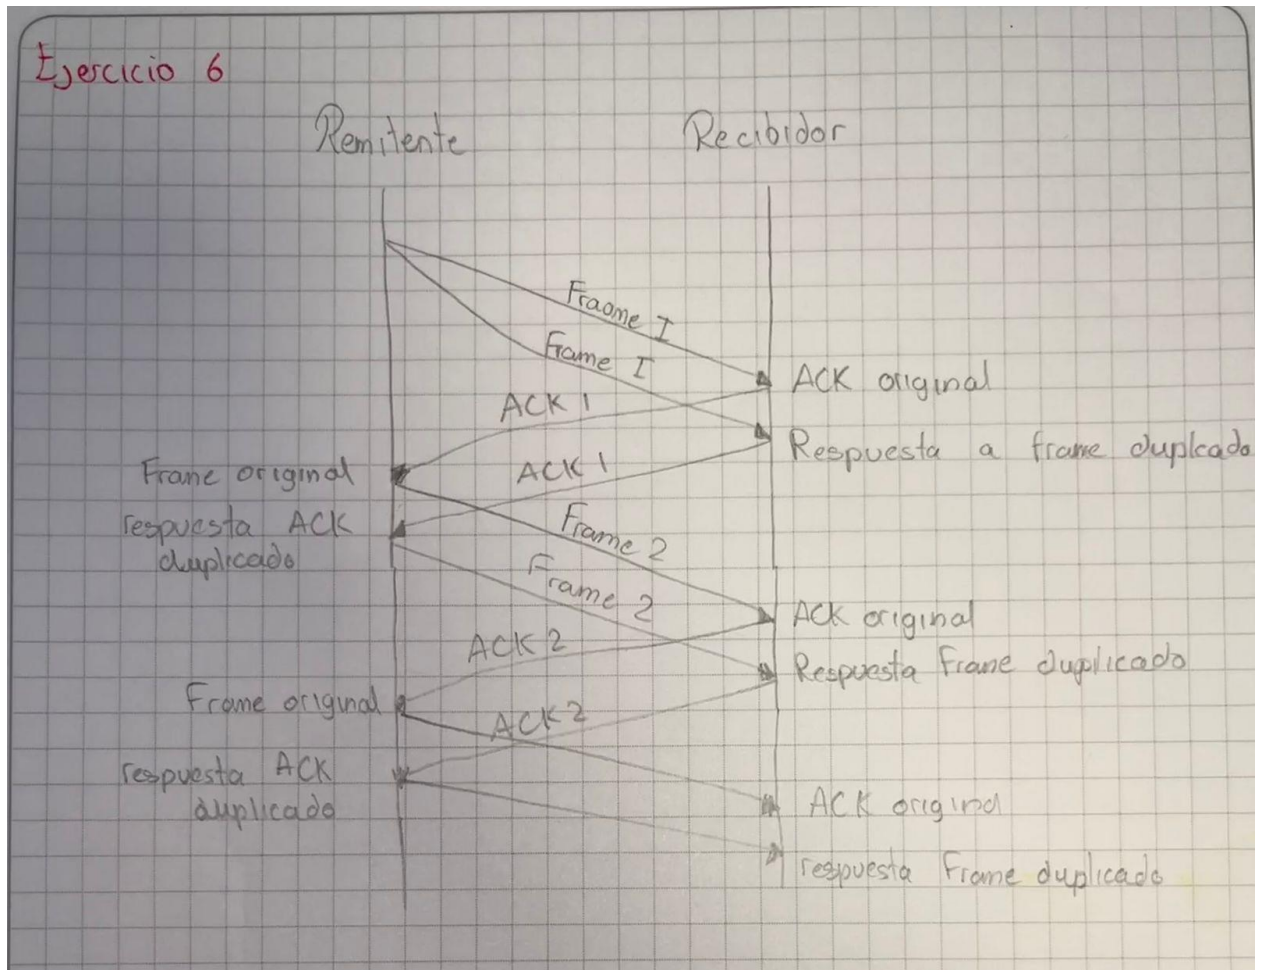 Ejercicio 6
Remitente
Recibidor
Fraome I
Frame I
ACK original
ACK 1
Respuesta a frame duplcado
Frame original
ACK 1
respuesta ACK
duplicado
Frame 2
Frame 2
ACK original
ACK 2
Respuesta Frame duplicado
Frame original
ACK 2
respuesta ACK
duplicado
ACK original
respuesta Frame duplicado